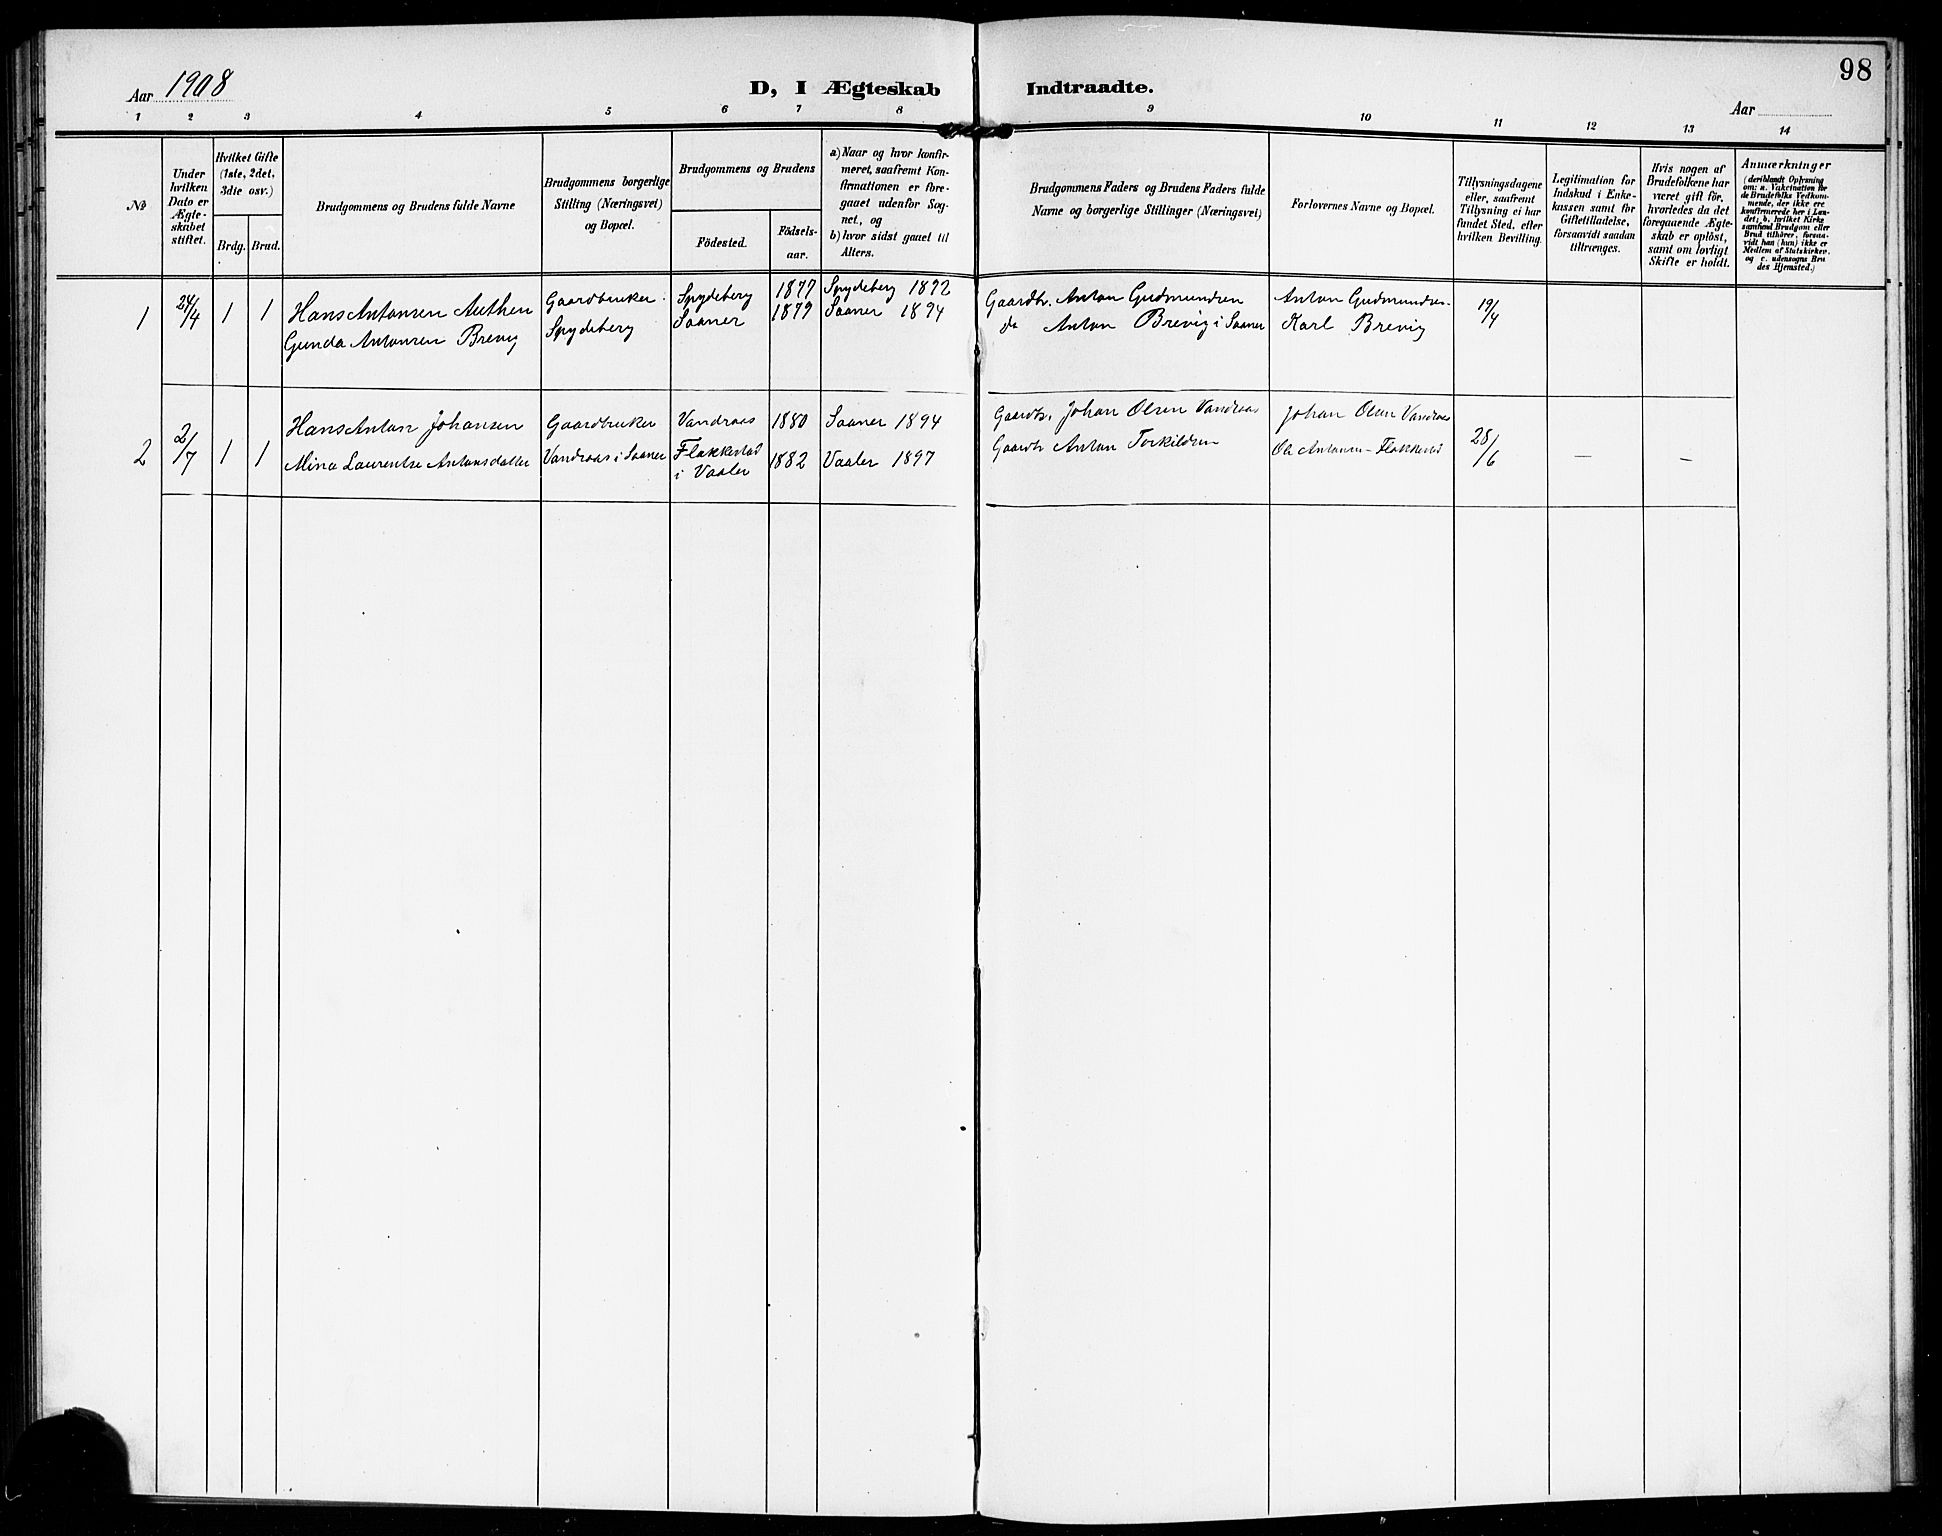 98
Aar 1908
D, I Ægteskab Indtraadte.
Aar
1 2 3 4 5 6 7 8 9 10 11 12 13 14
№
Under hvilken Dato er Ægteskabet stiftet.
Hvilket Gifte (1ste, 2det, 3die osv.)
Brdg. Brud.
Brudgommens og Brudens fulde Navne
Brudgommens borgerlige Stilling (Næringsvei) og Bopæl.
Brudgommens og Brudens
Födested.
Födselsaar.
a) Naar og hvor konfirmeret, saafremt Konfirmationen er foregaaet udenfor Sognet, og
b) hvor sidst gaaet til Alters.
Brudgommens Faders og Brudens Faders fulde Navne og borgerlige Stillinger (Næringsvei)
Forlovernes Navne og Bopæl.
Tillysningsdagene eller, saafremt Tillysning ei har fundet Sted, efter hvilken Bevilling.
Legitimation for Indskud i Enkekassen samt for Giftetilladelse, forsaavidt saadan tiltrænges.
Hvis nogen af Brudefolkene har været gift för, hvorledes da det foregaaende Ægteskab er oplöst, samt om lovligt Skifte er holdt.
Anmærkninger (deriblandt Oplysning om: a. Vakcination for de Brudefolks Vedkommende, der ikke ere konfirmerede her i Landet; b. hvilket Kirkesamfund Brudgom eller Brud tilhörer, forsaavidt han (hun) ikke er Medlem af Statskirken, og c. udensogns Brudes Hjemsted.)
1 24/4 1 1 Hans Antonsen Authen Gaardbruker Spydeberg 1877 Spydeberg 1892 Gaardbr. Anton Gudmundsen Anton Gudmundsen 19/4
Gunda Antonsen Brevig Spydeberg Saaner 1879 Saaner 1894 do Anton Brevig i Saaner Karl Brevig
2 2/7 1 1 Hans Anton Johansen Gaardbruker Vandraas 1880 Saaner 1894 Gaardb. Johan Olsen Vandraas Johan Olsen Vandraas 28/6 — —
Mina Laurentse Antonsdatter Vandraas i Saaner Flakkestad i Vaaler 1882 Vaaler 1897 Gaardb Anton Torkildsen Ole Antonsen - Flakkestad